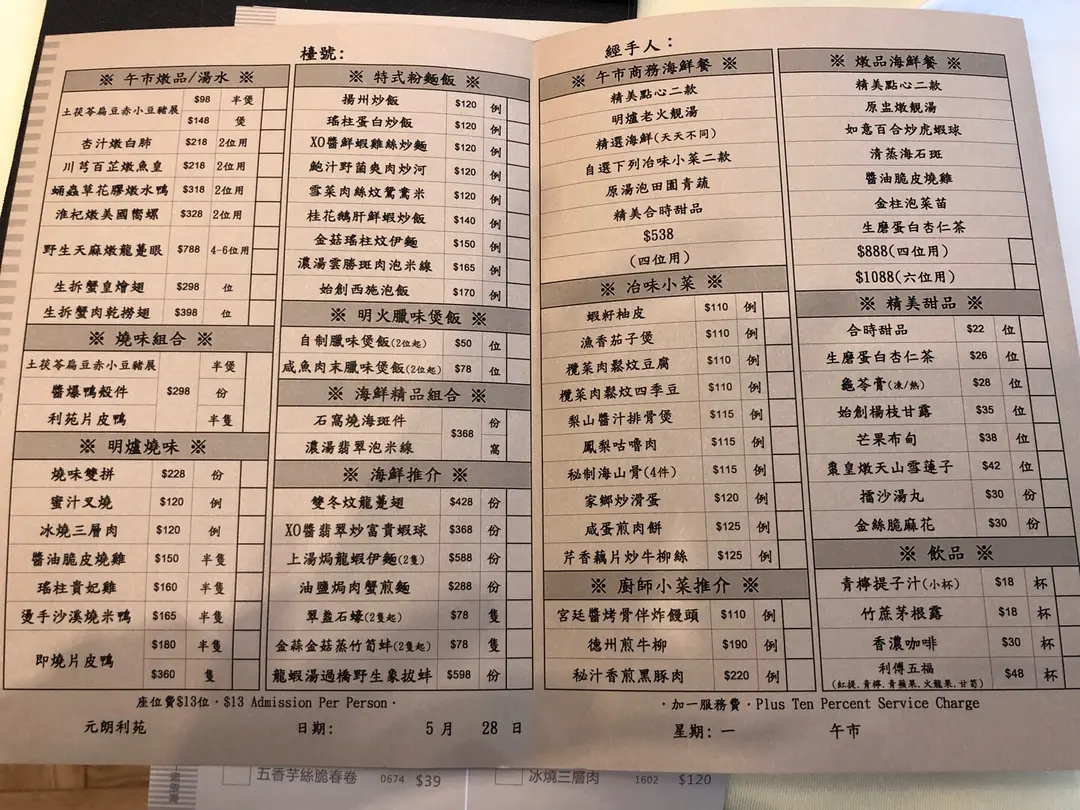 檯號:
經手人:
※ 午市燉品/湯水 ※
土茯苓扁豆赤小豆豬展 $98 半煲
$148 煲
杏汁燉白肺 $218 2位用
川芎百芷燉魚皇 $218 2位用
蛹蟲草花膠燉水鴨 $318 2位用
淮杞燉美國嚮螺 $328 2位用
野生天麻燉龍躉眼 $788 4-6位用
生拆蟹皇燴翅 $298 位
生拆蟹肉乾撈翅 $398 位
※ 燒味組合 ※
土茯苓扁豆赤小豆豬展 半煲
醬爆鴨殼件 $298 份
利苑片皮鴨 半隻
※ 明爐燒味 ※
燒味雙拼 $228 份
蜜汁叉燒 $120 例
冰燒三層肉 $120 例
醬油脆皮燒雞 $150 半隻
瑤柱貴妃雞 $160 半隻
燙手沙溪燒米鴨 $165 半隻
即燒片皮鴨 $180 半隻
$360 隻
※ 特式粉麵飯 ※
揚州炒飯 $120 例
瑤柱蛋白炒飯 $120 例
XO醬鮮蝦雞絲炒麵 $120 例
鮑汁野菌爽肉炒河 $120 例
雪菜肉絲炆鴛鴦米 $120 例
桂花鵝肝鮮蝦炒飯 $140 例
金菇瑤柱炆伊麵 $150 例
濃湯雲勝斑肉泡米線 $165 例
始創西施泡飯 $170 例
※ 明火臘味煲飯 ※
自制臘味煲飯(2位起) $50 位
咸魚肉末臘味煲飯(2位起) $78 位
※ 海鮮精品組合 ※
石窩燒海斑件 $368 份
濃湯翡翠泡米線 窩
※ 海鮮推介 ※
雙冬炆龍躉翅 $428 份
XO醬翡翠炒富貴蝦球 $368 份
上湯焗龍蝦伊麵(2隻) $588 份
油鹽焗肉蟹煎麵 $288 份
翠盈石蠔(2隻起) $78 隻
金蒜金菇蒸竹筍蚌(2隻起) $78 隻
龍蝦湯過橋野生象拔蚌 $598 份
※ 午市商務海鮮餐 ※
精美點心二款
明爐老火靚湯
精選海鮮(天天不同)
自選下列冶味小菜二款
原湯泡田園青蔬
精美合時甜品
$538
(四位用)
※ 冶味小菜 ※
蝦籽柚皮 $110 例
漁香茄子煲 $110 例
欖菜肉鬆炆豆腐 $110 例
欖菜肉鬆炆四季豆 $110 例
梨山醬汁排骨煲 $115 例
鳳梨咕嚕肉 $115 例
秘制海山骨(4件) $115 例
家鄉炒滑蛋 $120 例
咸蛋煎肉餅 $125 例
芹香藕片炒牛柳絲 $125 例
※ 廚師小菜推介 ※
宮廷醬烤骨伴炸饅頭 $110 例
德州煎牛柳 $190 例
秘汁香煎黑豚肉 $220 例
※ 燉品海鮮餐 ※
精美點心二款
原盅燉靚湯
如意百合炒虎蝦球
清蒸海石斑
醬油脆皮燒雞
金柱泡菜苗
生磨蛋白杏仁茶
$888(四位用)
$1088(六位用)
※ 精美甜品 ※
合時甜品 $22 位
生磨蛋白杏仁茶 $26 位
龜苓膏(凍/熱) $28 位
始創楊枝甘露 $35 位
芒果布甸 $38 位
棗皇燉天山雪蓮子 $42 位
擂沙湯丸 $30 份
金絲脆麻花 $30 份
※ 飲品 ※
青檸提子汁(小杯) $18 杯
竹蔗茅根露 $18 杯
香濃咖啡 $30 杯
利傳五福 $48 杯
(紅提,青檸,青蘋果,火龍果,甘筍)
座位費$13位·$13 Admission Per Person·
·加一服務費·Plus Ten Percent Service Charge
元朗利苑 日期: 5月 28日 星期: 一 午市
五香芋絲脆春卷 0674 $39
冰燒三層肉 1602 $120